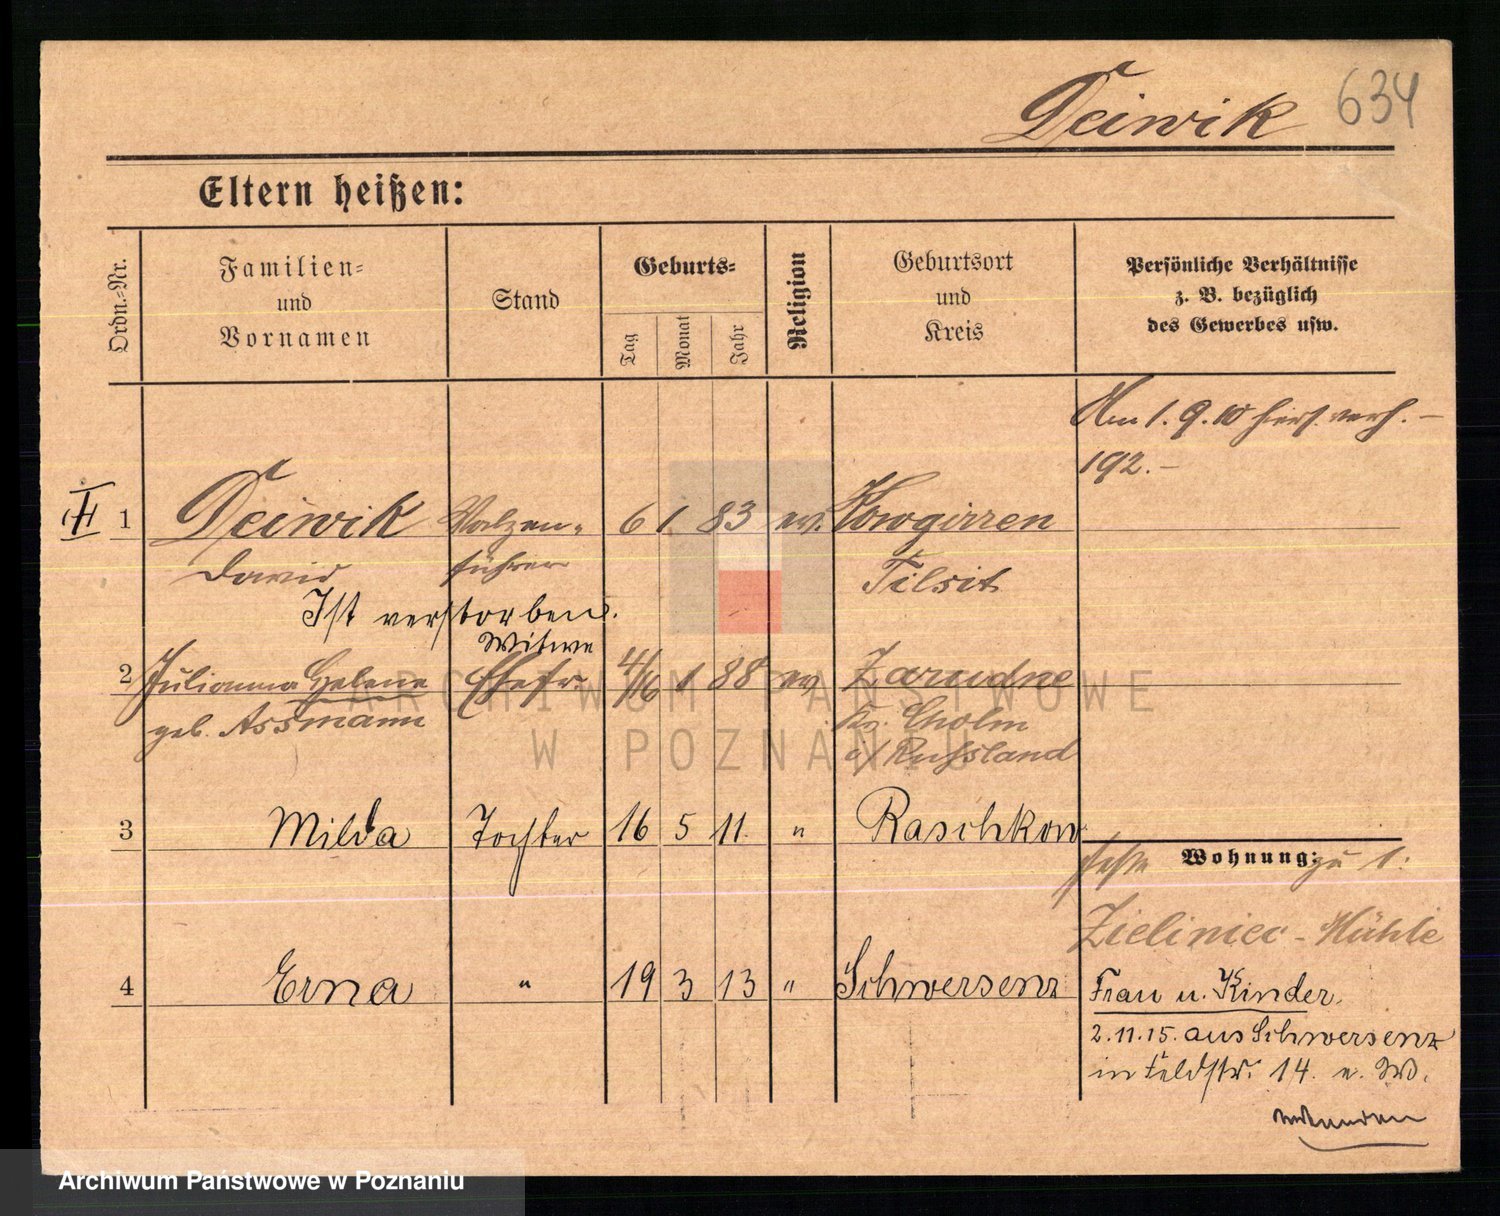 Deiwik 634
Eltern heißen:
Ordn.=Nr.
Familien=
und
Vornamen
Stand
Geburts=
Tag
Monat
Jahr
Religion
Geburtsort
und
Kreis
Persönliche Verhältnisse
z. B. bezüglich
des Gewerbes usw.
Am 1.9.10 hier verh. –
192. –
1 Deiwik Walzen= 6 1. 83 ev.
David führer Tilsit
Ist verstorben.
Witwe
2 Julianna Helene Ehefr. 4/16 1 88 ev Zarudne
geb. Assmann Kr. Cholm
i/ Russland
3 Milda Tochter 16 5 11. " Raschkow
Wohnung: zu 1.
Zieliniec - Mühle
4 Erna " 19 3 13 " Schwersenz
Frau u. Kinder.
2.11.15. aus Schwersenz
in Feldstr. 14.
ARCHIWUM PAŃSTWOWE
W POZNANIU
Archiwum Państwowe w Poznaniu